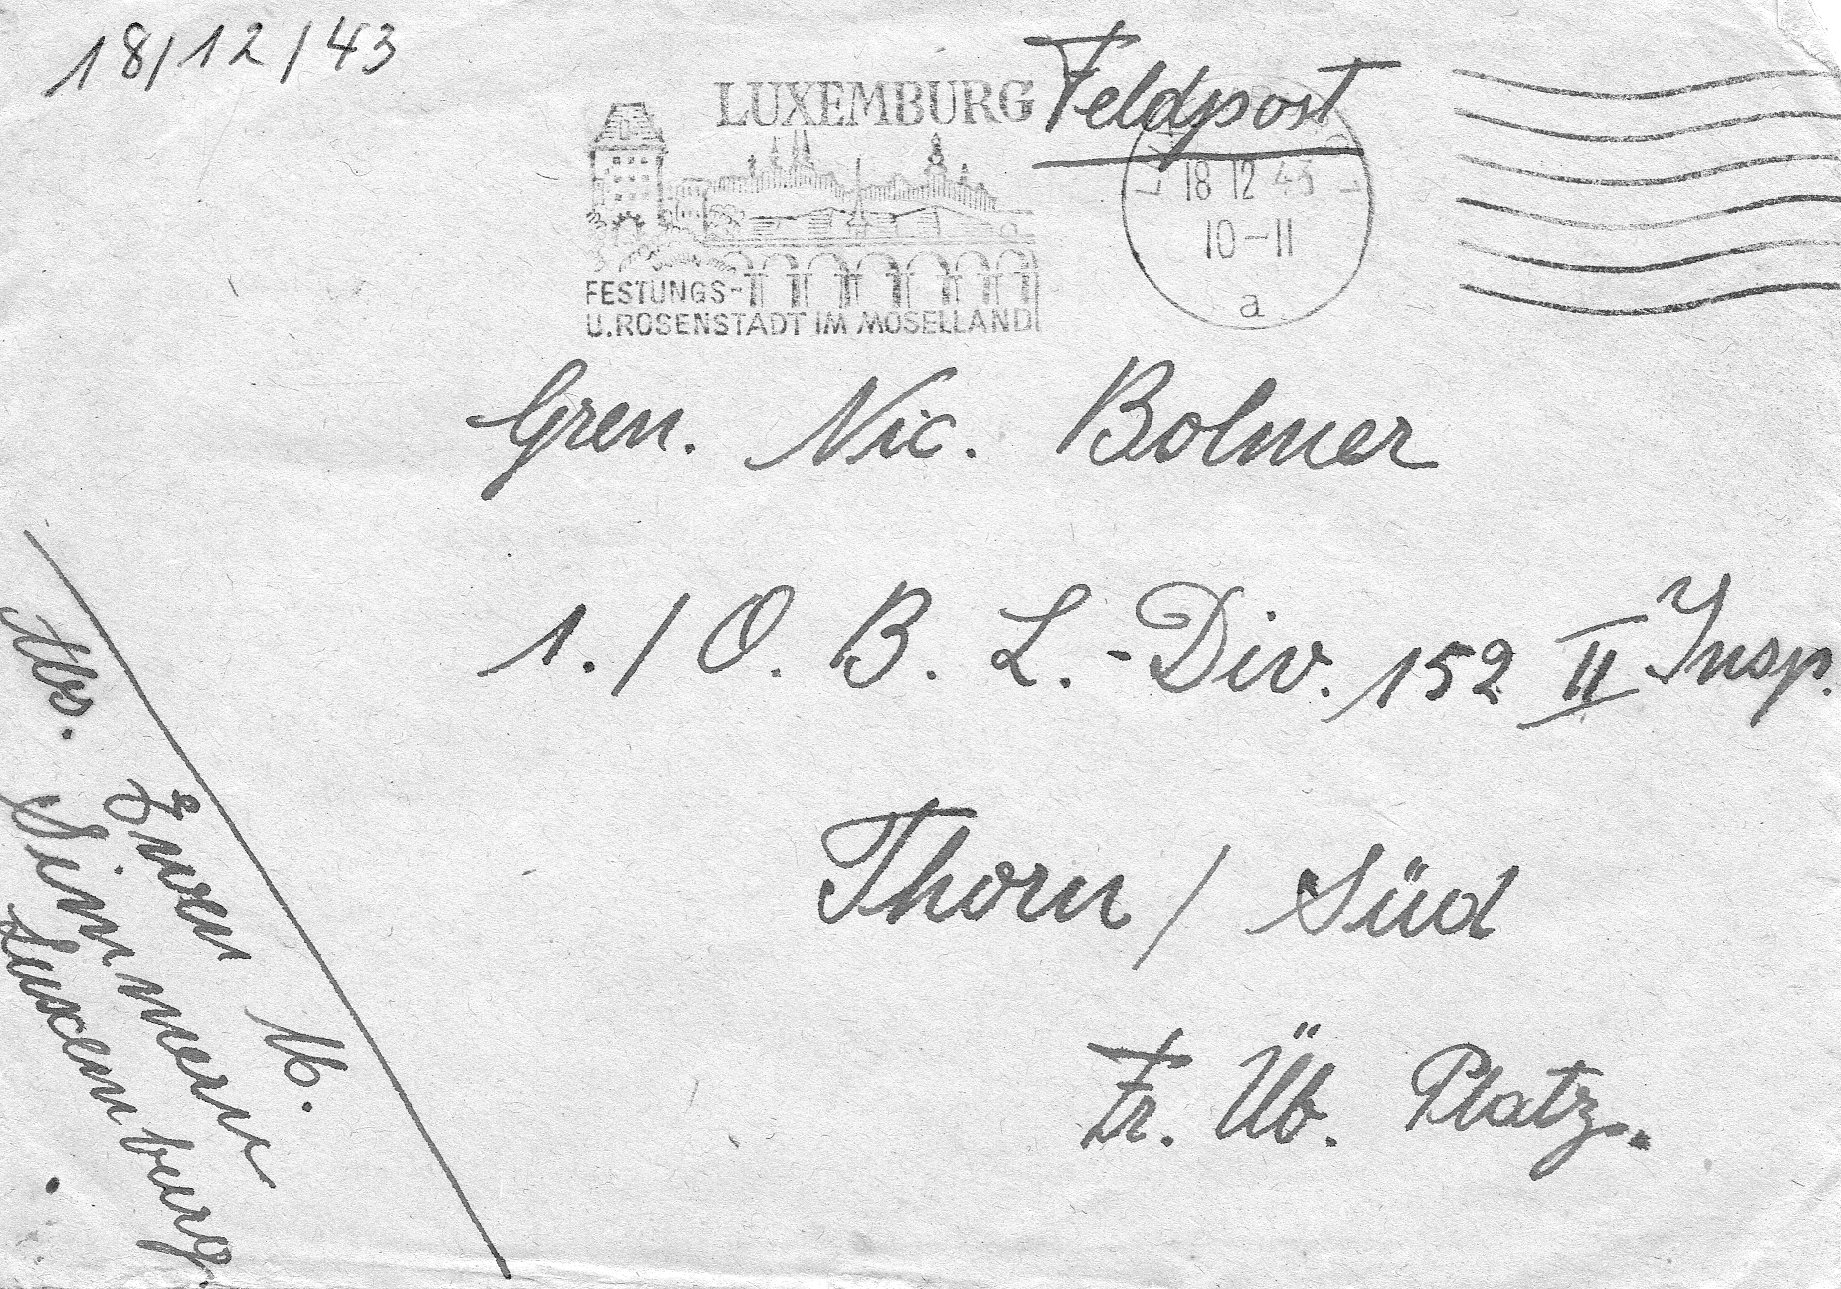 18/12/43
Feldpost
LUXEMBURG
FESTUNGS-
U. ROSENSTADT IM MOSELLAND
18 12 43
10-11
a
Gren. Nic. Bolmer
1. / O. B. L. - Div. 152 II Insp.
Thorn / Süd
Tr. Üb. Platz.
Abs.
M.
Simmern
Luxemburg.